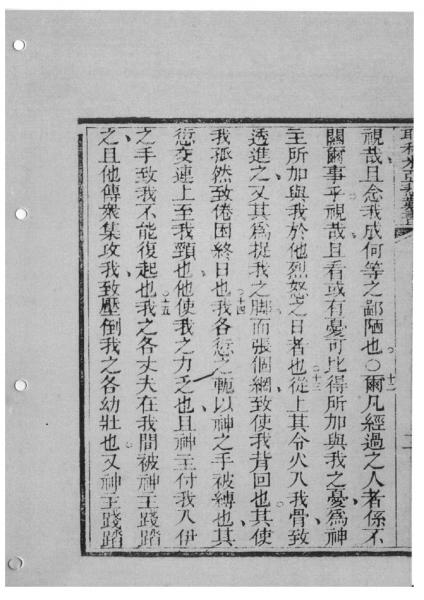 視哉且念我成何等之鄙陋也○十二爾凡經過之人者係不
關爾事乎視哉且看或有憂可比得所加與我之憂爲神
主所加與我於他烈怒之日者也十三從上其令火入我骨致
透進之又其爲捉我之脚而張個網致使我背回也其使
我孤然致倦困終日也十四我各愆之軛以神之手被縛也其
愆交連上至我頸也他使我之力乏也且神主付我入伊
之手致我不能復起也十五我之各丈夫在我間被神主踐踏
之且他傳衆集攻我致壓倒我之各幼壯也又神主踐踏